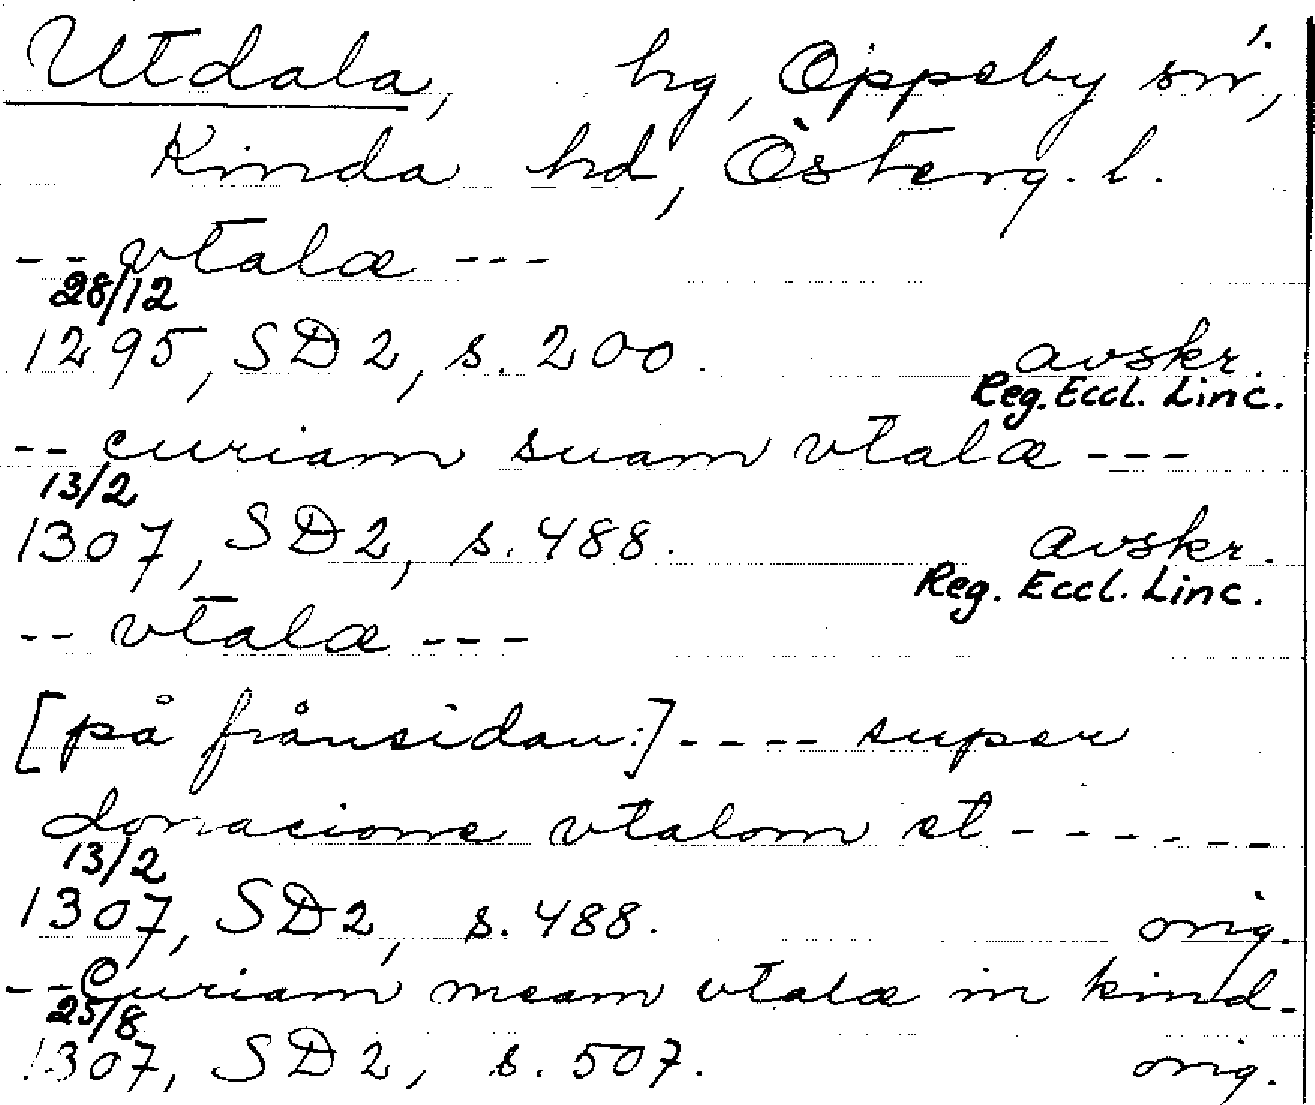 Utdala, hg, Oppeby sn,
Kinda hd, Österg. l.
-- vtalæ ---
28/12
1295, SD 2, s. 200. avskr.
Reg. Eccl. Linc.
-- curiam suam vtalæ ---
13/2
1307, SD 2, s. 488. avskr.
Reg. Eccl. Linc.
-- vtalæ ---
[på frånsidan:] ---- super
donacione vtalom et ------
13/2
1307, SD 2, s. 488. orig.
-- Curiam meam vtalæ in kind-
25/8
1307, SD 2, s. 507. orig.